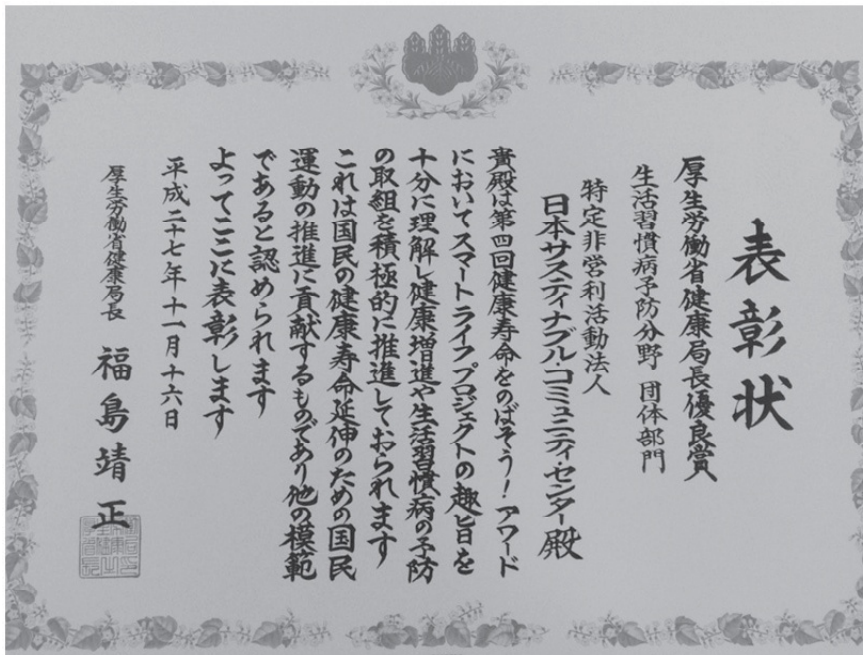 表彰状
厚生労働省健康局長優良賞
生活習慣病予防分野 団体部門
特定非営利活動法人
日本サスティナブル・コミュニティ・センター殿
貴殿は第四回健康寿命をのばそう！アワード
においてスマートライフプロジェクトの趣旨を
十分に理解し健康増進や生活習慣病の予防
の取組を積極的に推進しておられます
これは国民の健康寿命延伸のための国民
運動の推進に貢献するものであり他の模範
であると認められます
よってここに表彰します
平成二十七年十一月十六日
厚生労働省健康局長 福島靖正